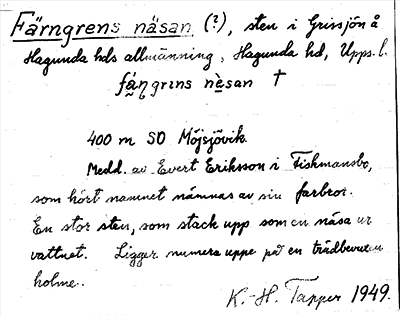 Färngrens näsan (?), sten i Grissjön å
Hagunda hds allmänning, Hagunda hd, Upps. l.
fä́ŋgrens nèsan †
400 m SO Möjsjövik.
Medd. av Evert Eriksson i Fiskmansbo,
som hört namnet nämnas av sin farbror.
En stor sten, som stack upp som en näsa ur
vattnet. Ligger numera uppe på en trädbevuxen
holme.
K.-H. Tapper 1949.